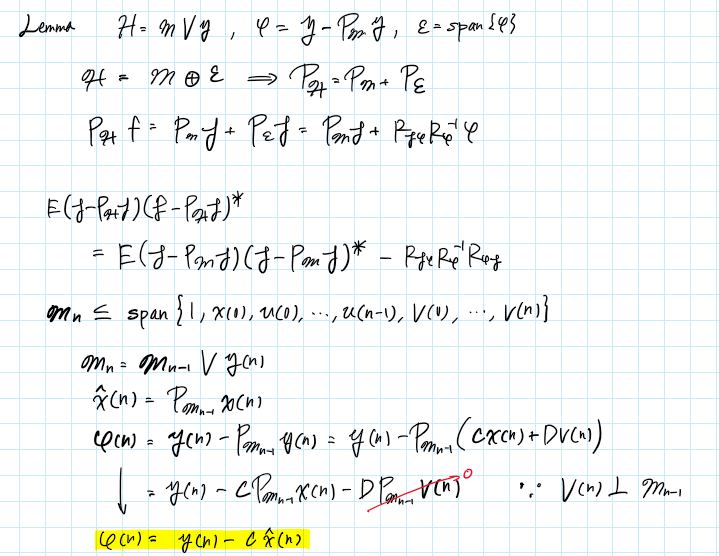 Lemma H = M ∨ y , φ = y - P_M y , ε = span {φ}
H = M ⊕ ε ⟹ P_H = P_M + P_ε
P_H f = P_M f + P_ε f = P_M f + R_fφ R_φ^-1 φ
E(f - P_H f)(f - P_H f)*
= E(f - P_M f)(f - P_M f)* - R_fφ R_φ^-1 R_φf
M_n ⊆ span {1, x(0), u(0), ..., u(n-1), v(0), ..., v(n)}
M_n = M_n-1 ∨ y(n)
x̂(n) = P_M_n-1 x(n)
φ(n) = y(n) - P_M_n-1 y(n) = y(n) - P_M_n-1 (Cx(n) + Dv(n))
↓ = y(n) - C P_M_n-1 x(n) - D P_M_n-1 v(n) 0 ∵ v(n) ⊥ M_n-1
φ(n) = y(n) - C x̂(n)